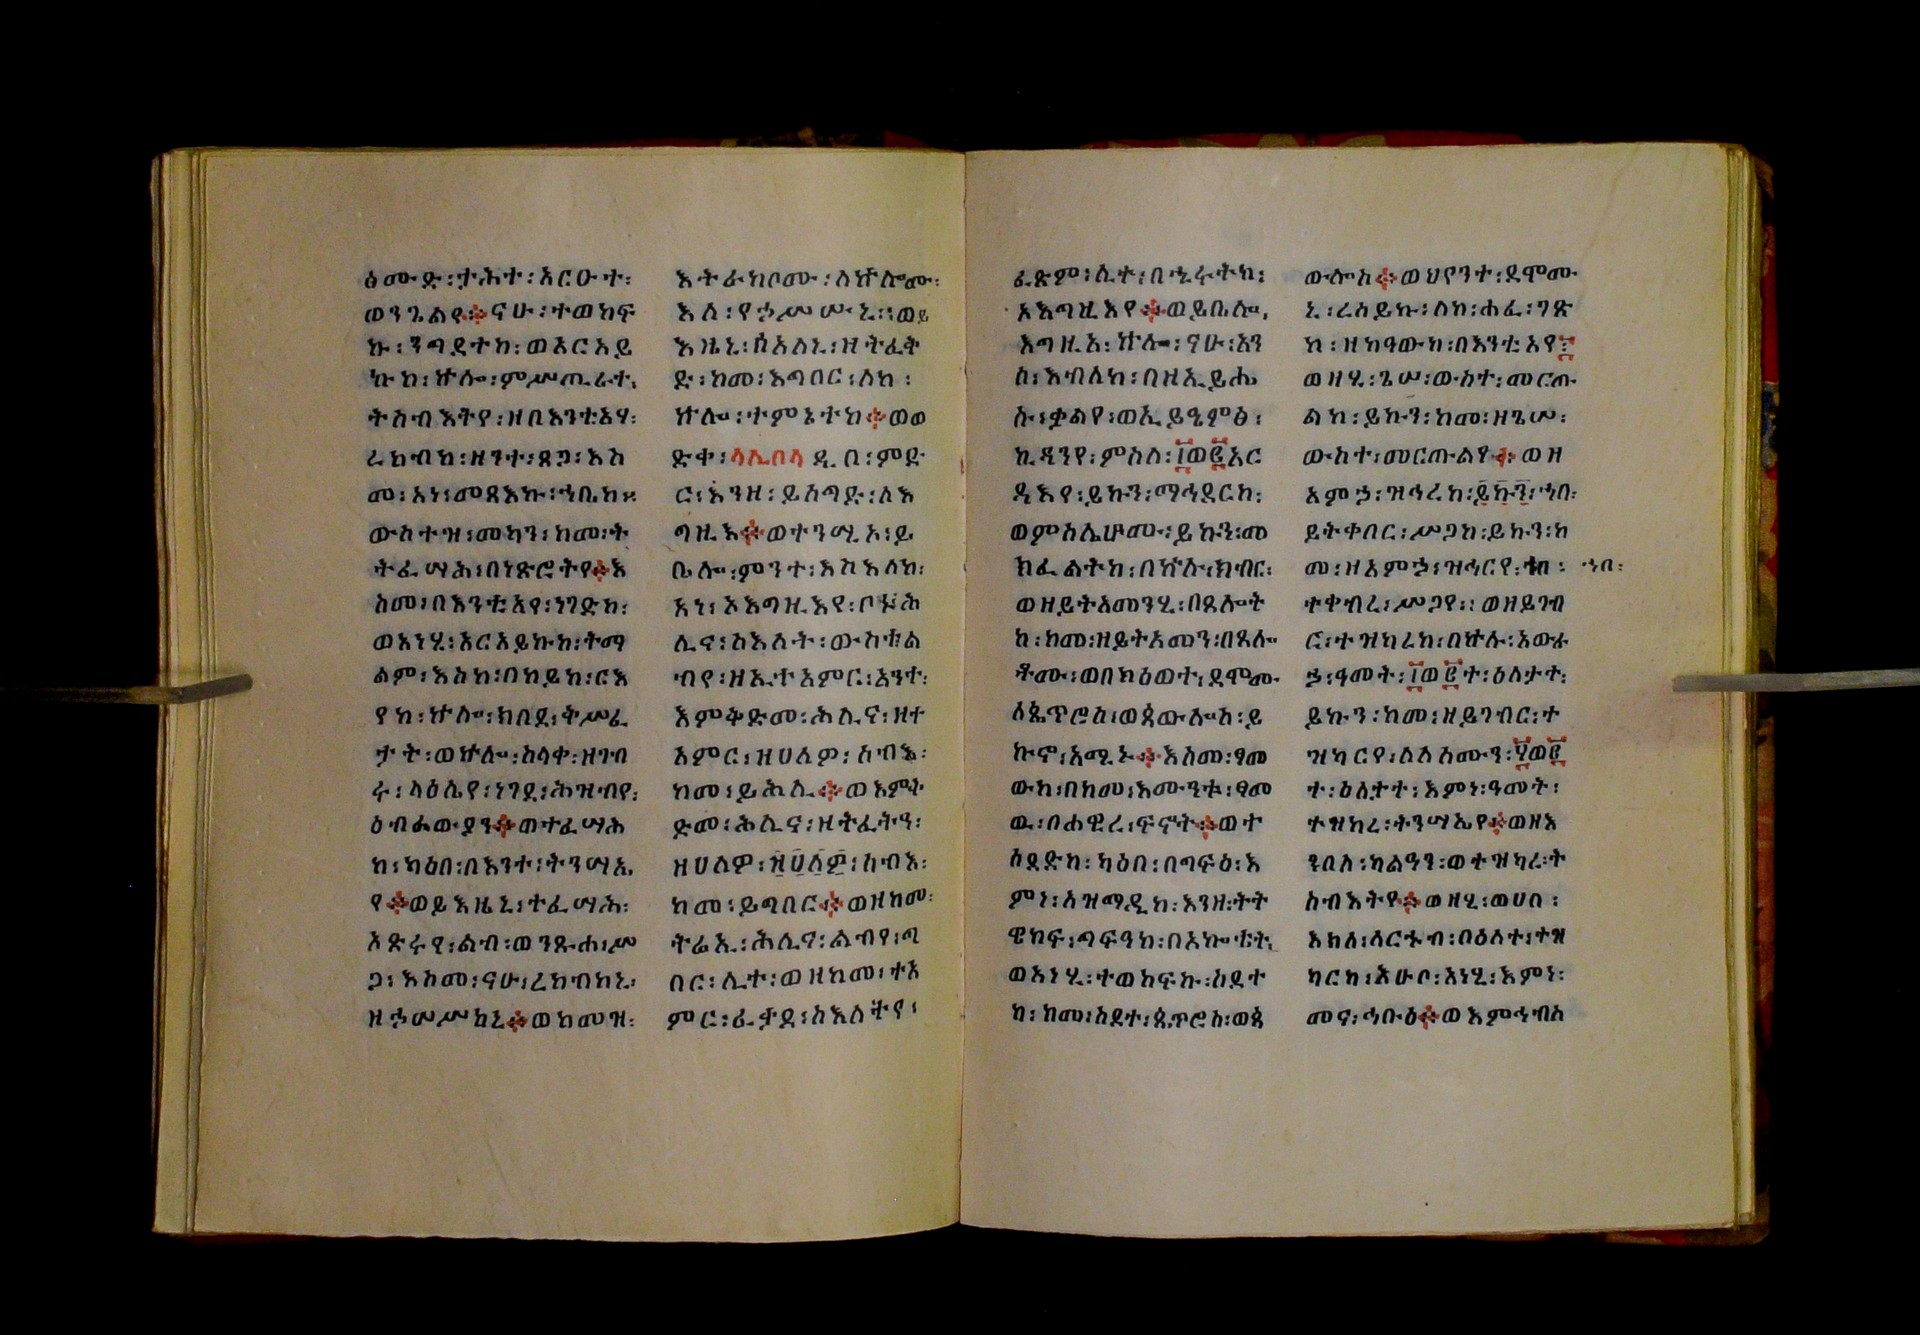 ፅሙድ፡ታሕተ፡አርዑተ፡
ወንጌልየ፨ናሁ፡ተወከፍ
ኩ፡ንግደተከ፡ወአርአይ
ኩከ፡ኵሎ፡ምሥጢራተ፡
ትስብእትየ፡ዘበእንቲአሃ፡
ረከብከ፡ዘንተ፡ጸጋ፡እስ
መ፡አነ፡መጻእኩ፡ኀቤከ፡
ውስተ፡ዝ፡መካን፡ከመ፡ት
ትፈሣሕ፡በነጽሮትየ፨እ
ስመ፡በእንቲአየ፡ነገድከ፡
ወአነሂ፡አርአይኩከ፡ትማ
ልም፡እስከ፡በከይከ፡ርእ
የከ፡ኵሎ፡ክበደ፡ቅሥፈ
ታት፡ወኵሎ፡ስላቀ፡ዘገብ
ሩ፡ላዕሌየ፡ነገደ፡ሕዝብየ፡
ዕብራውያን፨ወተፈሣሕ
ከ፡ካዕበ፡በእንተ፡ትንሣኤ
የ፨ወይእዜኒ፡ተፈሣሕ፡
እጽሩየ፡ልብ፡ወንጹሐ፡ሥ
ጋ፡እስመ፡ናሁ፡ረከብከኒ፡
ዘኃሠሥከኒ፨ወከመዝ፡
እትራከቦሙ፡ለኵሎሙ፡
እለ፡የኃሥሡኒ፡፡ወይ
እዜኒ፡ሰአለኒ፡ዘትፈቅ
ድ፡ከመ፡እግበር፡ለከ፡
ኵሎ፡ተምኔተከ፨ወወ
ድቀ፡ላሊበላ፡ዲበ፡ምድ
ር፡እንዘ፡ይሰግድ፡ለእ
ግዚእ፨ወተንሢኦ፡ይ
ቤሎ፡ምንተ፡እስእለከ፡
አነ፡ኦእግዚእየ፡ቦኑ፡ሕ
ሊና፡ስእለት፡ውስተ፡ል
ብየ፡ዘኢተአምር፡አንተ፡
እምቅድመ፡ሕሊና፡ዘተ
አምር፡ዘሀለዎ፡ሰብእ፡
ከመ፡ይሕሊ፨ወእምት
ድመ፡ሕሊና፡ዘትፈትዓ፡
ዘሀለዎ፡ዘሀለዎ፡ሰብእ፡
ከመ፡ይግበር፨ወዘከመ፡
ትሬኢ፡ሕሊና፡ልብየ፡ግ
በር፡ሊተ፡ወዘከመ፡ተአ
ምር፡ፈቃደ፡ስእለትየ፡
ፈጽም፡ሊተ፡በኂሩትከ፡
አእግዚእየ፨ወይቤሎ፡
እግዚአ፡ኵሎ፡ናሁ፡አን
ሰ፡እብለከ፡በዘኢይሔ
ሱ፡ቃልየ፡ወኢይዔምፅ፡
ኪዳንየ፡ምስለ፡፲ወ፪አር
ዳእየ፡ይኩን፡ማኅደርከ፡
ወምስሌሆሙ፡ይኩን፡መ
ክፈልትከ፡በኵሉ፡ክብር፡
ወዘይትአመንሂ፡በጸሎት
ከ፡ከመ፡ዘይትአመን፡በጸሎ
ቶሙ፡ወበክዕወተ፡ደሞሙ
ለጴጥሮስ፡ወጳውሎስ፡ይ
ኩኖ፡አሚኑ፨እስመ፡ፃመ
ውከ፡በከመ፡እሙንቱ፡ፃመ
ዉ፡በሐዊረ፡ፍኖት፨ወተ
ሰደድከ፡ካዕበ፡በግፍዕ፡እ
ምነ፡አዝማዲከ፡እንዘ፡ትት
ዌከፍ፡ግፍዓከ፡በአኰቴት
ወአነሂ፡ተወከፍኩ፡ስደተ
ከ፡ከመ፡ስደተ፡ጴጥሮስ፡ወጳ
ውሎስ፨ወህየንተ፡ደሞሙ
ኒ፡ረሰይኩ፡ለከ፡ሐፈ፡ገጽ
ከ፡ዘከዓውከ፡በእንቲአየ፡
ወዘሂ፡ጌሠ፡ውስተ፡መርጡ
ልከ፡ይኩን፡ከመ፡ዘጌሠ፡
ውስተ፡መርጡልየ፨ወዘ
አምኃ፡ዝኅረከ፡ይኩን፡ኀበ፡
ይትቀበር፡ሥጋከ፡ይኩን፡ከ
መ፡ዘአምኃ፡ዝኅርየ፡ኀበ፡ ኀበ፡
ተቀብረ፡ሥጋየ፡፡ወዘይገብ
ር፡ተዝካረከ፡በኵሉ፡አውራ
ኃ፡ዓመት፡፲ወ፪ተ፡ዕለታት፡
ይኩን፡ከመ፡ዘይገብር፡ተ
ዝካርየ፡ለለአሙን፡፳ወ፪
ተ፡ዕለታተ፡እምነ፡ዓመት፡
ተዝከረ፡ትንሣኤየ፨ወዘእ
ንበለ፡ካልዓን፡ወተዝካረ፡ት
ስብእትየ፨ወዘሂ፡ወሀበ፡
እክለ፡ለርኁብ፡በዕለተ፡ተዝ
ካርከ፡እሁቦ፡አነሂ፡እምነ፡
መና፡ኅቡዕ፨ወእምኅብስ